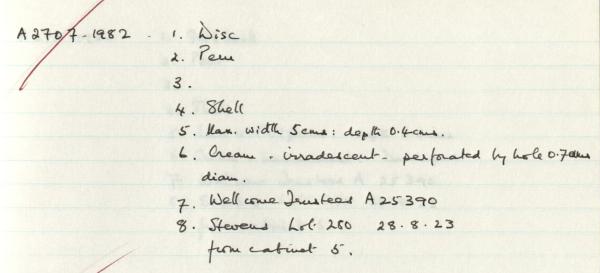 A2707-1982 . 1. Disc
2. Peru
3.
4. Shell
5. Max. width 5cms: depth 0.4cms.
6. Cream - irradescent - perforated by hole 0.7cms
diam.
7. Wellcome Trustees A25390
8. Stevens Lot 280 28.8.23
from cabinet 5.